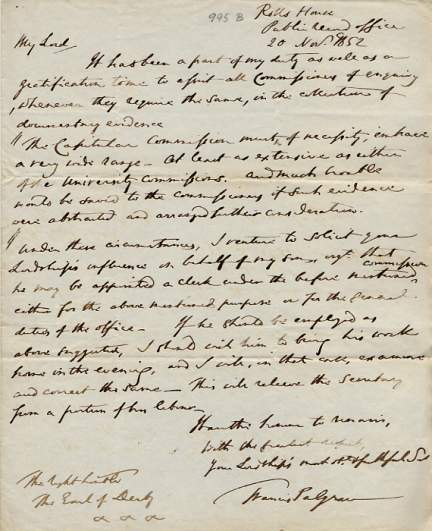 995 B
Rolls House
Public Record office
20 Nov. 1852
My Lord
It has been a part of my duty as well as a
gratification to me to assist all Commissions of enquiry
, whenever they require the same, in the collection of
documentary evidence
" The Capitular Commission must, of necessity, embrace
a very wide range – at least as extensive as either
of the University Commissions. and much trouble
would be saved to the commissioners if such evidence
were abstracted and arranged for their consideration.
" Under these circumstances, I venture to solicit your
Lordship's influence on behalf of my son, that
he may be appointed a clerk under the before mentioned commission
either for the above mentioned purpose or for the general
duties of the office – If he should be employed as
above suggested, I should wish him to bring his work
home in the evening, and I will, in that case, examine
and correct the same – This will relieve the Secretary
from a portion of his labour –
I have the honor to remain,
With the greatest respect,
Your Lordship's most ob. & faithful
Francis Palgrave
The right honble
The Earl of Derby